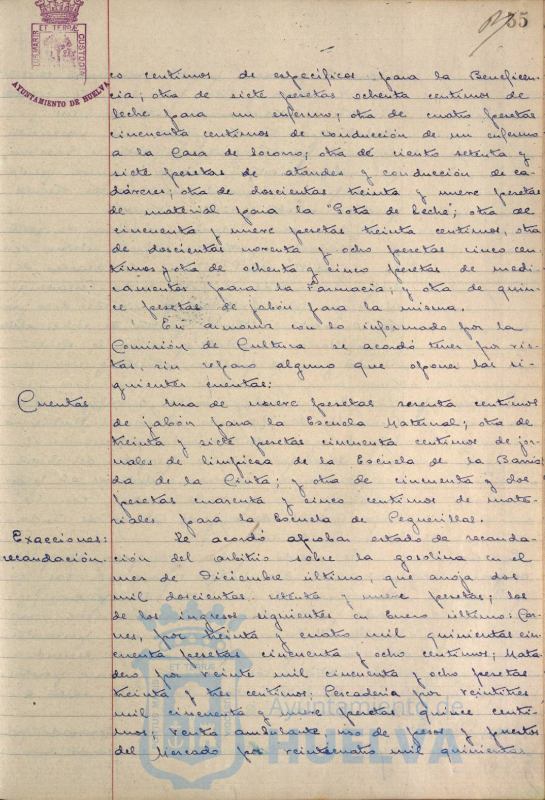 65
ET TERRÆ
PORTUS MARIS
CUSTODIA
AYUNTAMIENTO DE HUELVA
co centimos de especificos para la Beneficen-
cia; otra de siete pesetas ochenta centimos de
leche para un enfermo; otra de cuatro pesetas
cincuenta centimos de conducción de un enfermo
a la Casa de Socorro; otra de ciento setenta y
siete pesetas de ataudes y conducción de ca-
dáveres; otra de doscientas treinta y nueve pesetas
de material para la "Gota de Leche"; otra de
cincuenta y nueve pesetas treinta centimos, otra
de doscientas noventa y ocho pesetas cinco cen-
timos y otra de ochenta y cinco pesetas de medi-
camentos para la Farmacia; y otra de quin-
ce pesetas de jabón para la misma.
En armonia con lo informado por la
Comisión de Cultura se acordó tener por vis-
tas, sin reparo alguno que oponer las si-
guientes cuentas:
Cuentas Una de nueve pesetas sesenta centimos
de jabón para la Escuela Maternal; otra de
treinta y siete pesetas cincuenta centimos de jor-
nales de limpieza de la Escuela de la Barria-
da de la Cinta; y otra de cincuenta y dos
pesetas cuarenta y cinco centimos de mate-
riales para la Escuela de Pequeñillas.
Exacciones: Se acordó aprobar estado de recauda-
recaudación. ción del arbitrio sobre la gasolina en el
mes de Diciembre último, que arroja dos
mil doscientas setenta y nueve pesetas; los
de los ingresos siguientes en Enero último: Car-
nes, por treinta y cuatro mil quinientas cin-
cuenta pesetas cincuenta y ocho centimos; Mata-
dero por veinte mil cincuenta y ocho pesetas
treinta y tres centimos; Pescaderia por veintitres
mil cincuenta y nueve pesetas quince centi-
mos; venta ambulante, uso de pesas y puestos
del Mercado por veinticuatro mil quinientas
Ayuntamiento de
HUELVA